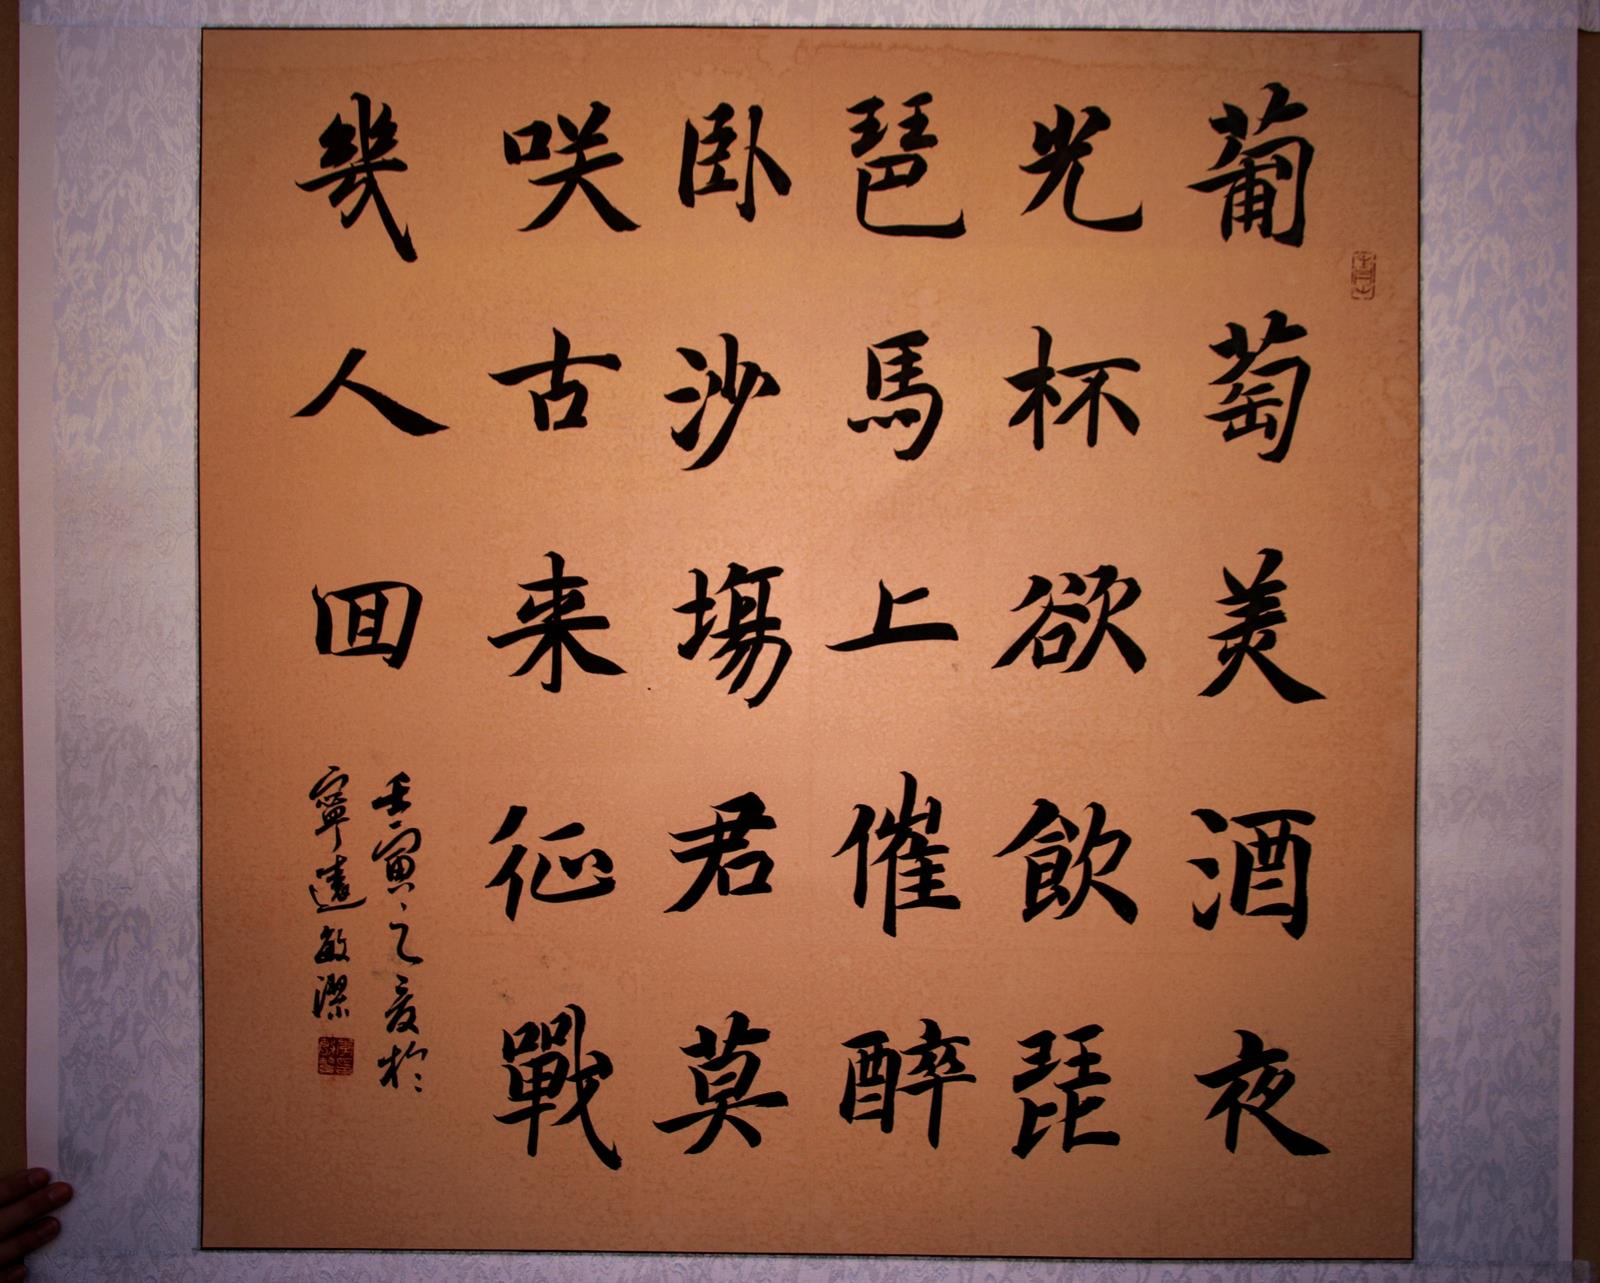 葡萄美酒夜
光杯欲飲琵
琶馬上催醉
卧沙塲君莫
咲古来征戰
幾人囬
壬寅之夏於
寧遠敏潔